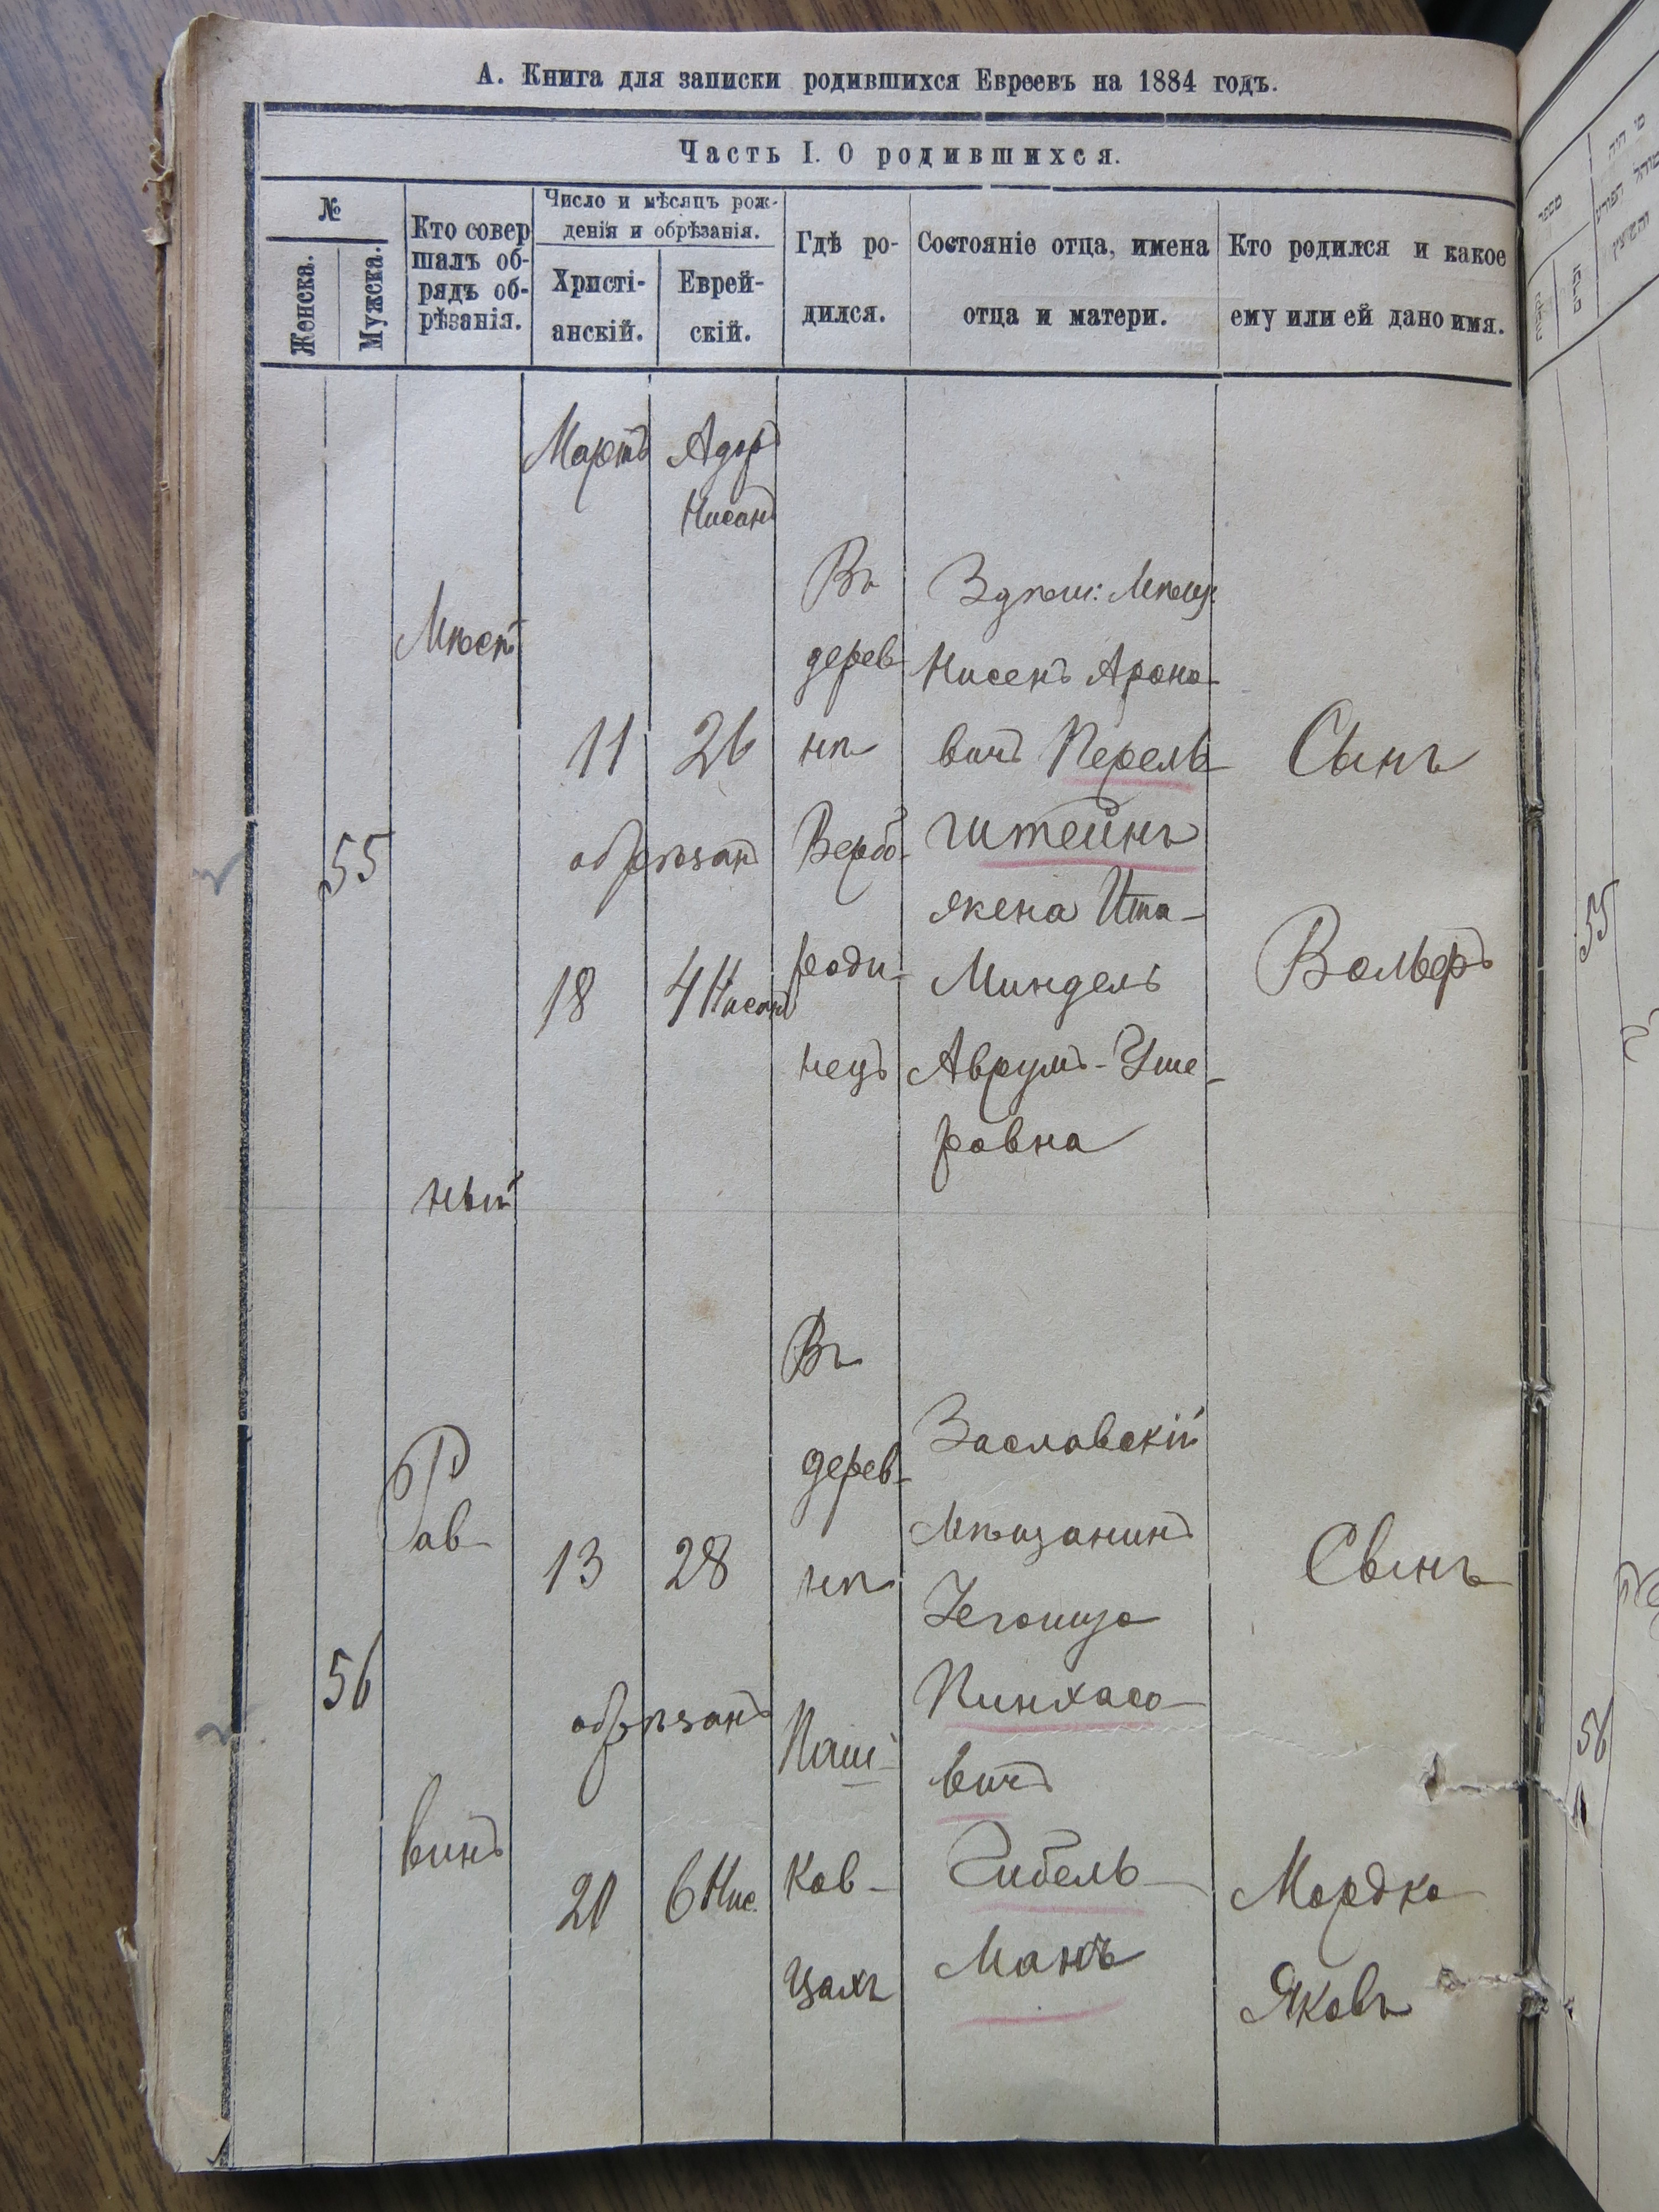 А. Книга для записки родившихся Евреевъ на 1884 годъ.
Часть I. О родившихся.
№
Женска.
Мужска.
Кто совер
шалъ об-
рядъ об-
рѣзанія.
Число и мѣсяцъ рож-
денія и обрѣзанія.
Христі-
анскій.
Еврей-
скій.
Гдѣ ро-
дился.
Состояніе отца, имена
отца и матери.
Кто родился и какое
ему или ей дано имя.
Мартъ
Адаръ
Нисанъ
55
Мѣст
ный
11
26
обрѣзанъ
18
4 Нисанъ
Въ
дерев-
нѣ
Вербо-
роди-
нецъ
Здѣш: Мѣщ:
Нисенъ Ароно-
вичъ Перель-
штейнъ
жена Ита-
Миндель
Аврумъ-Уше-
ровна
Сынъ
Вольфъ
56
Рав-
винъ
13
28
обрѣзанъ
20
6 Нис.
Въ
дерев-
нѣ
Паш-
ков-
цахъ
Заславскій
Мѣщанинъ
Пинхасо-
вичъ
Гибель-
манъ
Сынъ
Мордко
Яковъ
55
56